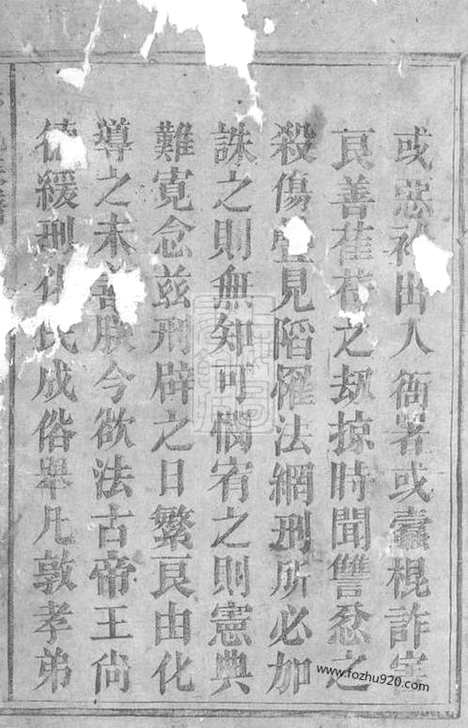 或 出入衙署或蠹棍詐害
良善萑苻之劫掠時聞讐忿之
殺傷 見陷罹法網刑所必加
誅之則無知可憫宥之則憲典
難寛念兹刑辟之日繁良由化
導之未 朕今欲法古帝王尚
德緩刑化民成俗舉凡敦孝弟
www.fozhu920.com